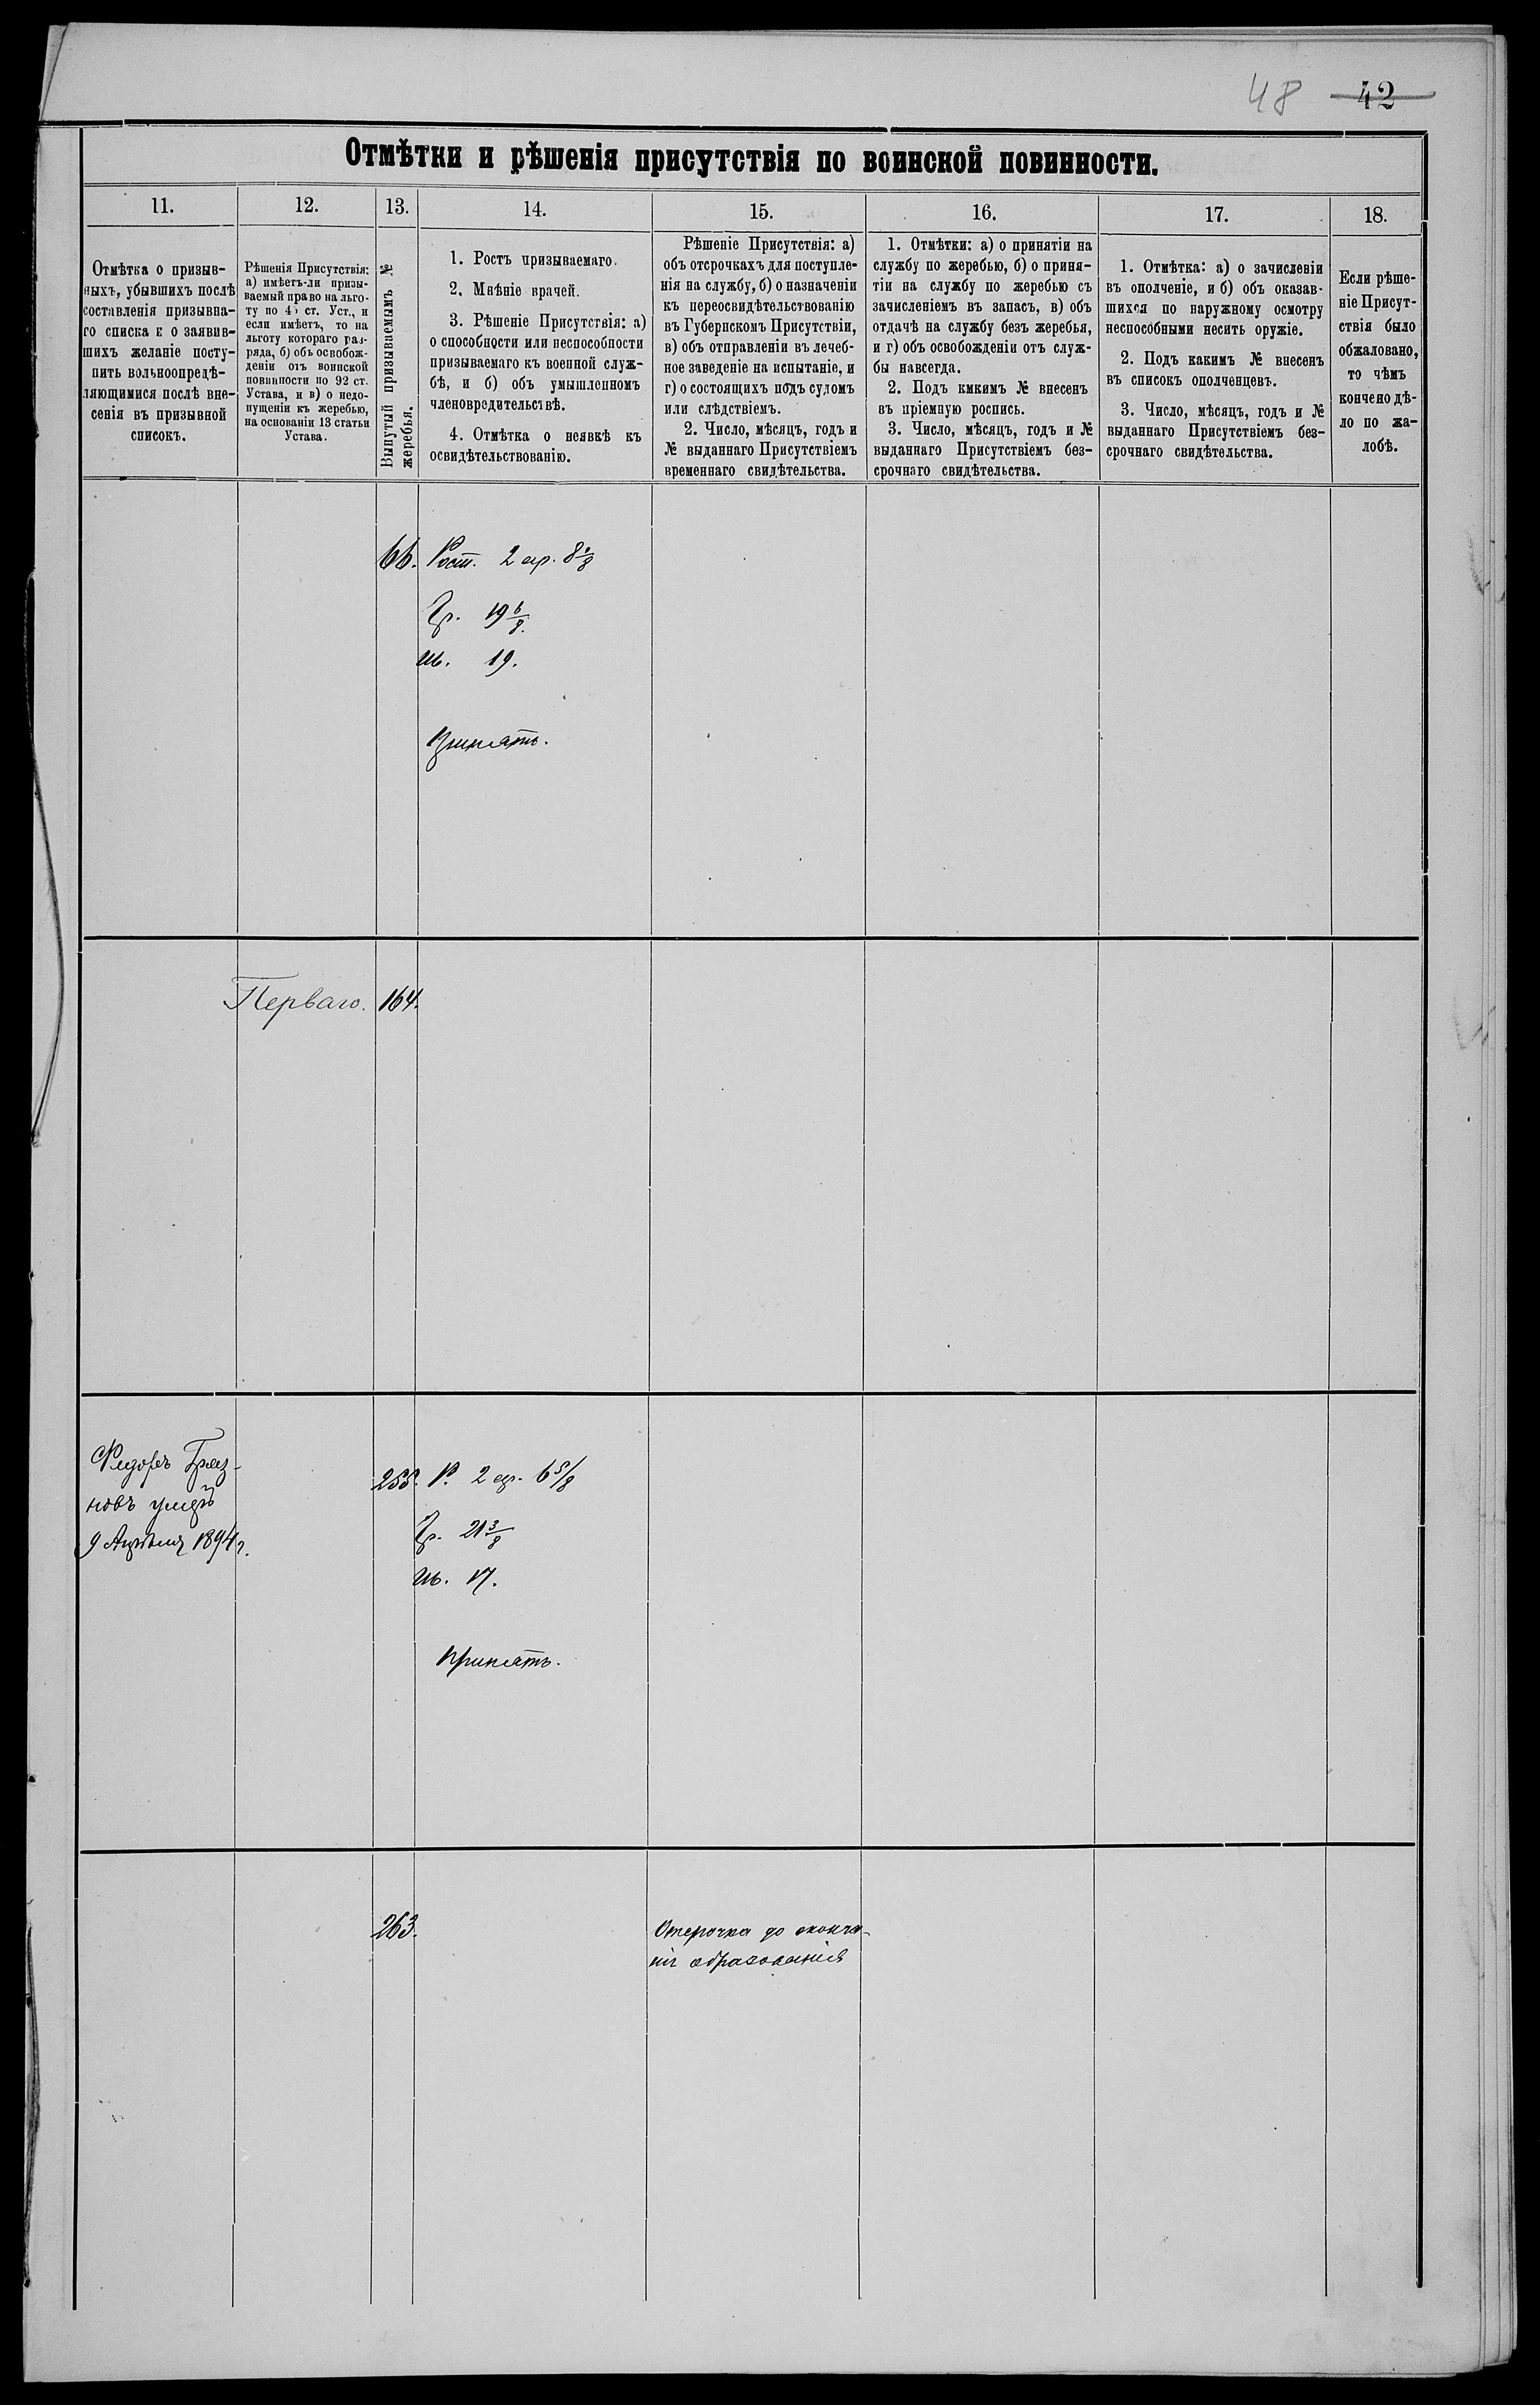 48 42
Отмѣтки и рѣшенія присутствія по воинской повинности.
11.
12.
13.
14.
15.
16.
17.
18.
Отмѣтка о призыв-
ныхъ, убывшихъ послѣ
составленія призывна-
го списка и о заявив-
шихъ желаніе посту-
пить вольноопредѣ-
ляющимися послѣ вне-
сенія въ призывной
списокъ.
Рѣшенія Присутствія:
а) имѣетъ-ли призы-
ваемый право на льго-
ту по 45 ст. Уст., и
если имѣетъ, то на
льготу котораго раз-
ряда, б) объ освобож-
деніи отъ воинской
повинности по 92 ст.
Устава, и в) о недо-
пущеніи къ жеребью,
на основаніи 13 статьи
Устава.
Вынутый призываемымъ №
жеребья.
1. Ростъ призываемаго.
2. Мнѣніе врачей.
3. Рѣшеніе Присутствія: а)
о способности или неспособности
призываемаго къ военной служ-
бѣ, и б) объ умышленномъ
членовредительствѣ.
4. Отмѣтка о неявкѣ къ
освидѣтельствованію.
Рѣшеніе Присутствія: а)
объ отсрочкахъ для поступле-
нія на службу, б) о назначеніи
къ переосвидѣтельствованію
въ Губернскомъ Присутствіи,
в) объ отправленіи въ лечеб-
ное заведеніе на испытаніе, и
г) о состоящихъ подъ судомъ
или слѣдствіемъ.
2. Число, мѣсяцъ, годъ и
№ выданнаго Присутствіемъ
временнаго свидѣтельства.
1. Отмѣтки: а) о принятіи на
службу по жеребью, б) о приня-
тіи на службу по жеребью съ
зачисленіемъ въ запасъ, в) объ
отдачѣ на службу безъ жеребья,
и г) объ освобожденіи отъ служ-
бы навсегда.
2. Подъ кмкимъ № внесенъ
въ пріемную роспись.
3. Число, мѣсяцъ, годъ и №
выданнаго Присутствіемъ без-
срочнаго свидѣтельства.
1. Отмѣтка: а) о зачисленіи
въ ополченіе, и б) объ оказав-
шихся по наружному осмотру
неспособными несить оружіе.
2. Подъ какимъ № внесенъ
въ списокъ ополченцевъ.
3. Число, мѣсяцъ, годъ и №
выданнаго Присутствіемъ без-
срочнаго свидѣтельства.
Если рѣше-
ніе Присут-
ствія было
обжаловано,
то чѣмъ
кончено дѣ-
ло по жа-
лобѣ.
66. Рост. 2 ар.
Гр. 19 6/8.
ув. 19.
Принять.
Перваго. 164.
Федоръ Гряз-
новъ умеръ
9 Апрѣля 1894 г.
255. Р. 2 ар. 6 5/8
Гр. 21 3/8
ув. 17.
Принять.
263. Отсрочка до оконча-
нія образованія